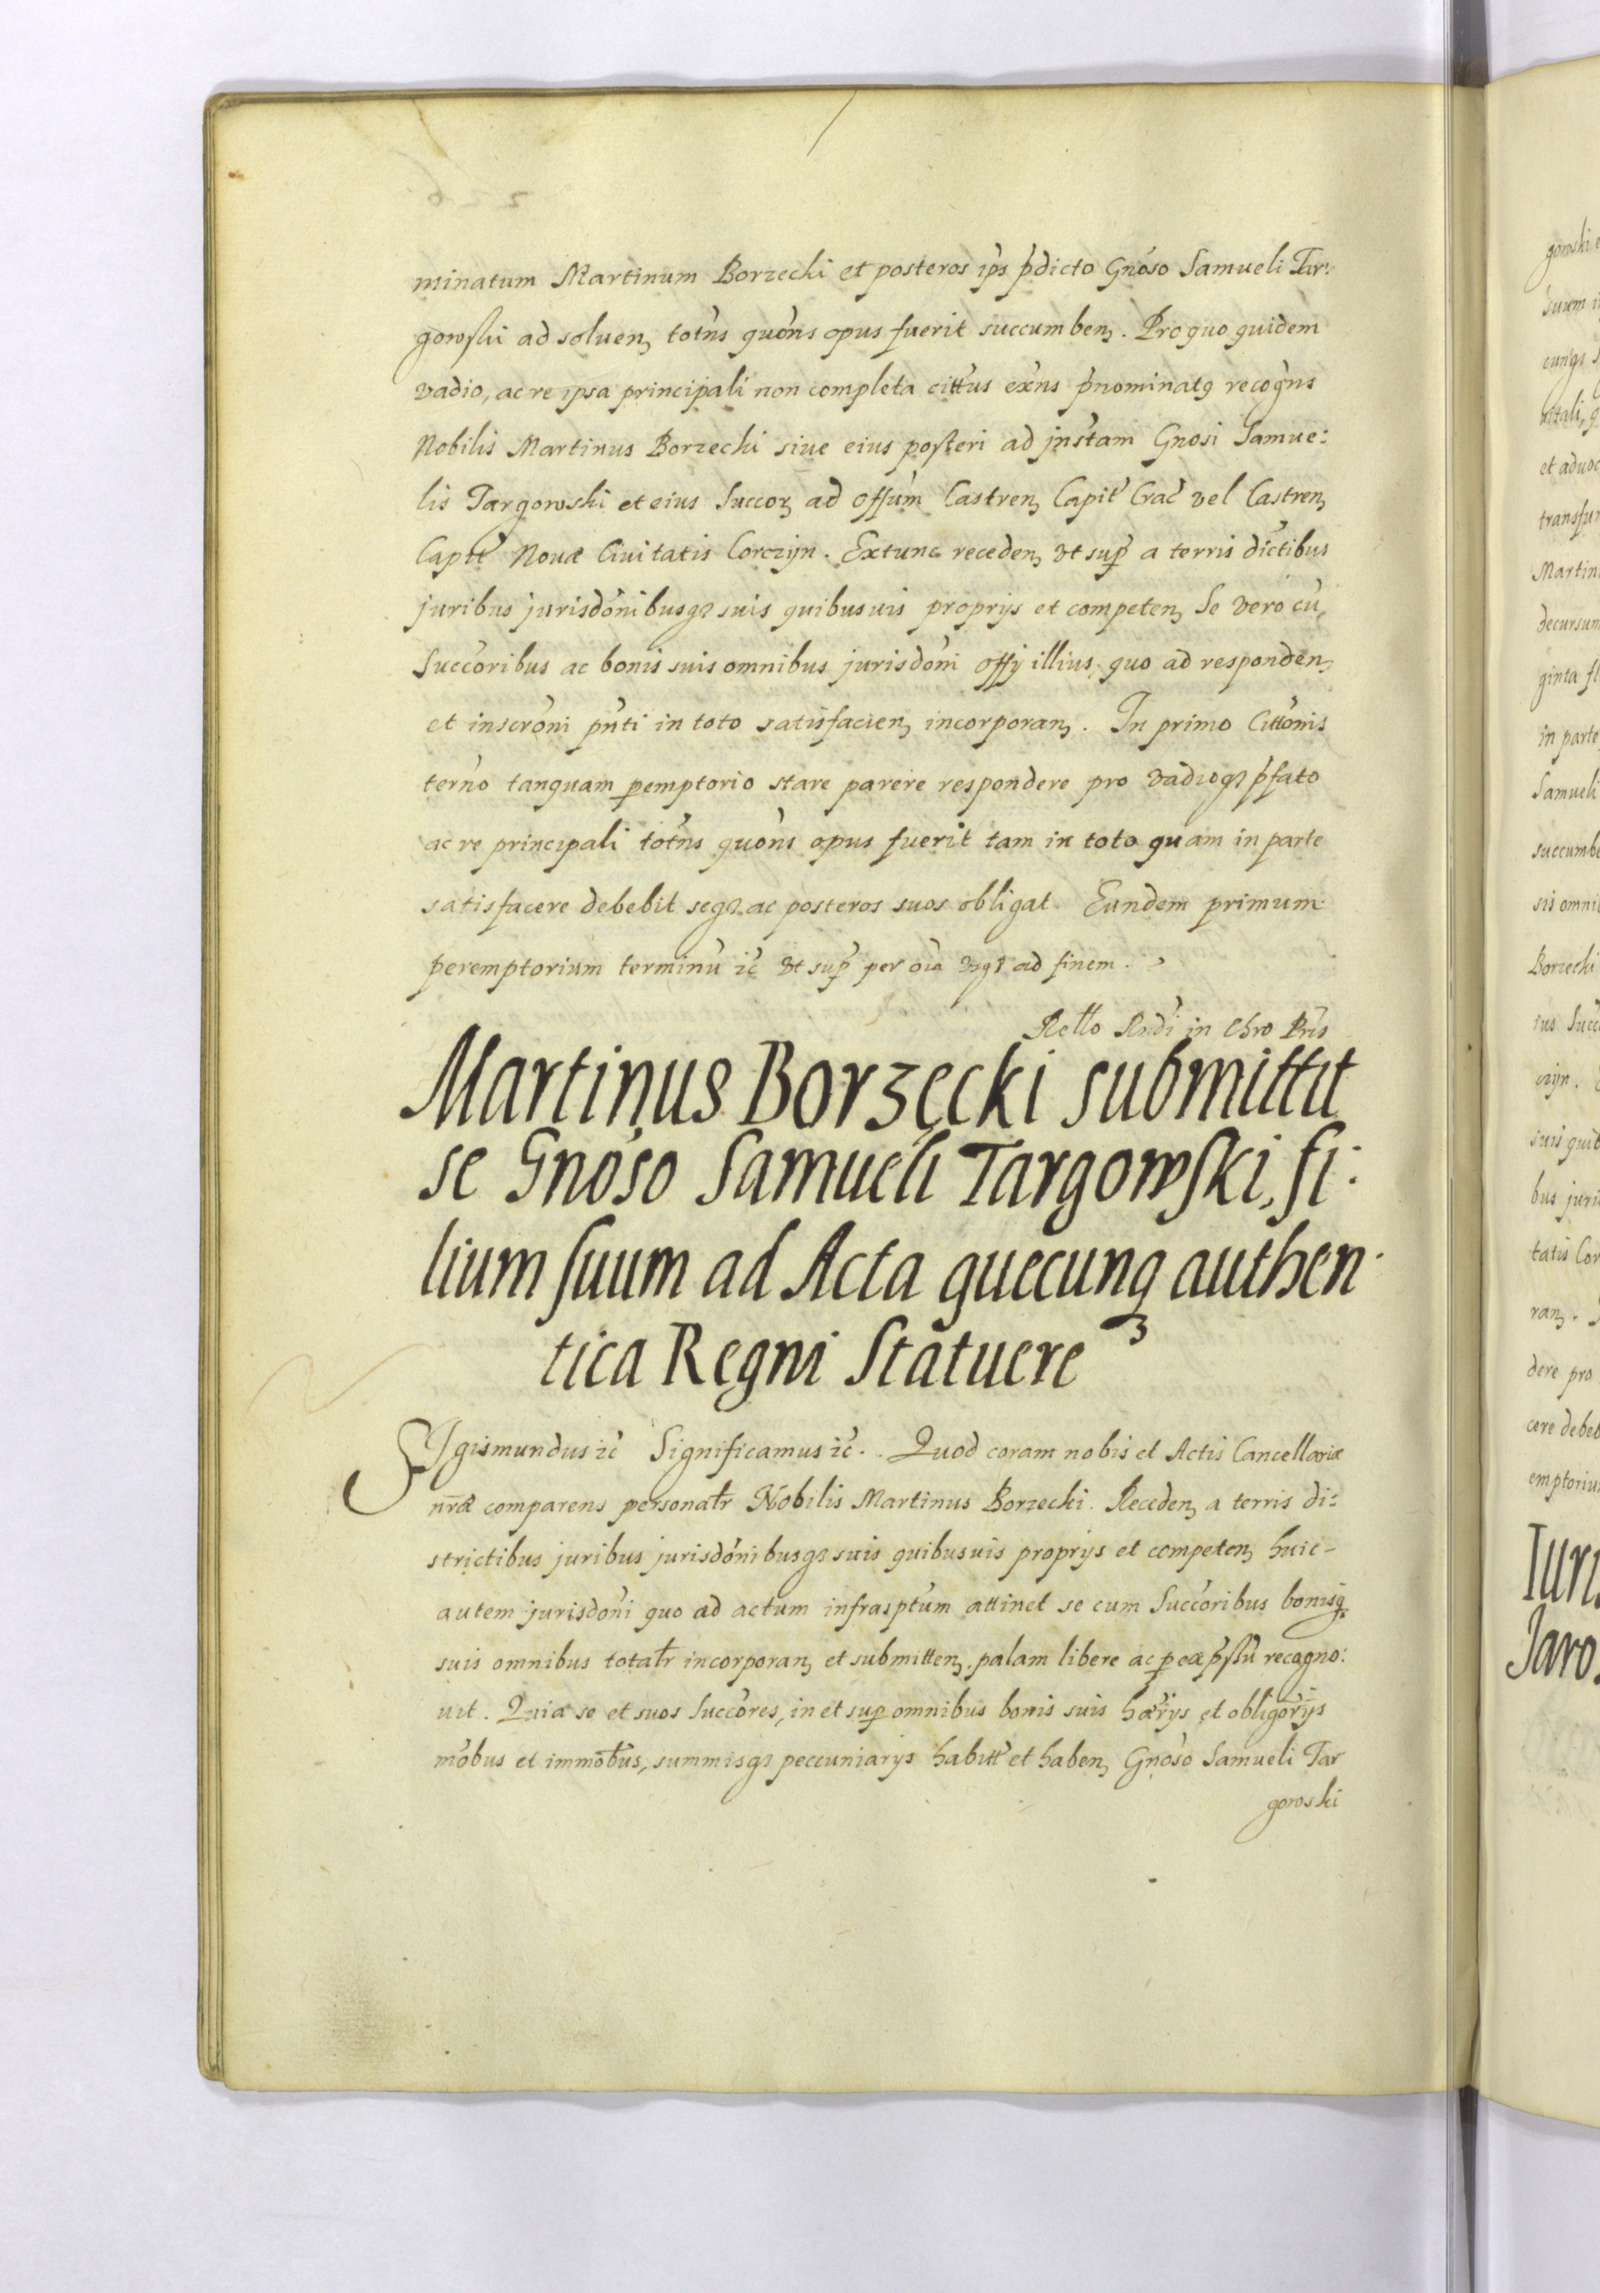 minatum Martinum Borzecki et posteros ip̃s p̃dicto Gnoso Samueli Tar:
gowski ad soluenȝ totñs quoñs opus fuerit succumbenȝ. Pro quo quidem
vadio, ac re ipsa principali non completa cittus exñs p̃nominatꝫ recogñs
Nobilis Martinus Borzecki siue eius posteri ad jnstam Gnosi Samue:
lis Targowski et eius Succorȝ ad Offum Castrenȝ Capit̃ Crac̃ vel Castrenȝ
Capit̃ Nouæ Ciuitatis Corczijn. Extunc recedenȝ vt sup̃ a terris dictibus
juribus jurisdõnibusqꝫ suis quibusuis proprijs et competenȝ Se vero cũ
Succoribus ac bonis suis omnibus jurisdõni offij illius, quo ad respondenȝ
et inscrõni pñti in toto satisfacienȝ incorporanȝ. In primo Cittõnis
terño tanquam peremptorio stare parere respondere pro vadioqꝫ p̃fato
ac re principali totñs quoñs opus fuerit tam in toto quam in parte
satisfacere debebit seqꝫ ac posteros suos obligat. Eundem primum
peremptorium terminũ ic̃ vt sup̃ per oĩa vsqꝫ ad finem.
Rello Rñdi in Chro Pris
Martinus Borzęcki submittit
se Gnoso Samueli Targowski, fi:
lium suum ad Acta quecunqꝫ authen:
tica Regni Statuere
Sigismundus ic̃ Significamus ic̃. Quod coram nobis et Actis Cancellariæ
nr̃æ comparens personalr̃ Nobilis Martinus Borzecki. Recedenȝ a terris di:
strictibus juribus jurisdõnibusqꝫ suis quibusuis proprijs et competenȝ huic
autem jurisdõni quo ad actum infrasptum attinet se cum Succoribus bonisqꝫ
suis omnibus totalr̃ incorporanȝ et submittenȝ, palam libere ac p ex p̃ssũ recogno:
uit. Quia se et suos Succores, in et sup omnibus bonis suis hær̃ijs et obligor̃ijs
mõbus et immõbus, summisqꝫ peccuniarijs habitt̃ et habenȝ Gnoso Samueli Tar
gowski